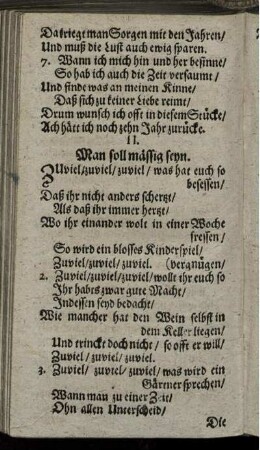 Da kriegt man Sorgen mit den Jahren/
Und muß die Lust auch ewig sparen.
7. Wann ich mich hin und her besinne/
So hab ich auch die Zeit versaumt/
Und finde was an meinen Kinne/
Daß sich zu keiner Liebe reimt/
Drum wunsch ich offt in diesem Stücke/
Ach hätt ich noch zehn Jahr zurücke.
II.
Man soll mässig seyn.
ZUviel/zuviel/zuviel/ was hat euch so
besessen/
Daß ihr nicht anders schertzt/
Als daß ihr immer hertzt/
Wo ihr einander wolt in einer Woche
fressen/
So wird ein blosses Kinderspiel/
Zuviel/zuviel/zuviel. (vergnügen/
2. Zuviel/zuviel/zuviel/ wollt ihr euch so
Ihr habts zwar gute Macht/
Indessen seyd bedacht/
Wie mancher hat den Wein selbst in
dem Keller liegen/
Und trincket doch nicht/ so offt er will/
Zuviel/ zuviel/ zuviel.
3. Zuviel/ zuviel/ zuviel/ was wird ein
Gärtner sprechen/
Wann man zu einer Zeit/
Ohn allen Unterscheid/
Die